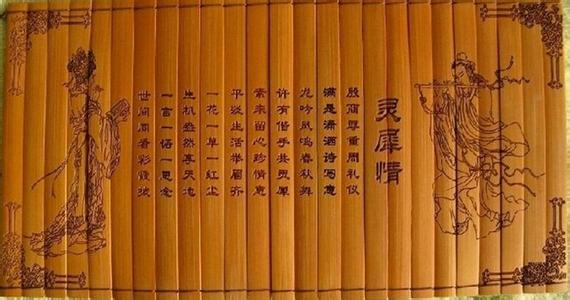 灵犀情
殷商尊重周礼仪
满是潇洒诗写意
龙吟凤鸣春秋舞
许有偕手共灵犀
素来留心珍情意
平淡生活举眉齐
一花一草一红尘
生机盎然享天地
一言一语一思念
世间同看彩霞披